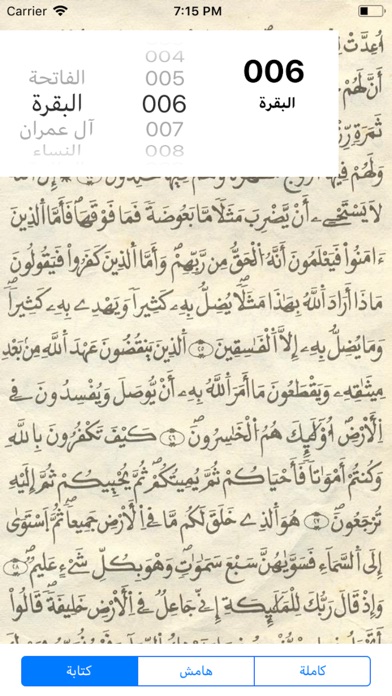 Carrier 7:15 PM
اُعِدَّتْ
004
الفاتحة 005
البقرة 006
آل عمران 007
النساء 008
006
البقرة
أَنَّ لَهُمْ
ثَمَرَةٖ رِّزْقاٗ
وَلَهُمْ فِيهَا
لَا يَسْتَحْيِۦٓ أَنْ يَّضْرِبَ مَثَلاٗ مَّا بَعُوضَةٗ فَمَا فَوْقَهَاۖ فَأَمَّا اَ۬لذِينَ
ءَامَنُواْ فَيَعْلَمُونَ أَنَّهُ اُ۬لْحَقُّ مِن رَّبِّهِمْۖ وَأَمَّا اَ۬لذِينَ كَفَرُواْ فَيَقُولُونَ
مَاذَآ أَرَادَ اَ۬للَّهُ بِهَٰذَا مَثَلاٗۖ يُضِلُّ بِهِۦ كَثِيراٗ وَيَهْدِے بِهِۦ كَثِيراٗۖ
وَمَا يُضِلُّ بِهِۦٓ إِلَّا اَ۬لْفَٰسِقِينَ ۝٢٥ اَ۬لذِينَ يَنقُضُونَ عَهْدَ اَ۬للَّهِ مِنۢ بَعْدِ
مِيثَٰقِهِۦ وَيَقْطَعُونَ مَآ أَمَرَ اَ۬للَّهُ بِهِۦٓ أَنْ يُّوصَلَ وَيُفْسِدُونَ فِے
اِ۬لْأَرْضِۖ أُوْلَٰٓئِكَ هُمُ اُ۬لْخَٰسِرُونَۖ ۝٢٦ كَيْفَ تَكْفُرُونَ بِاللَّهِ
وَكُنتُمْ أَمْوَٰتاٗ فَأَحْيَٰكُمْ ثُمَّ يُمِيتُكُمْ ثُمَّ يُحْيِيكُمْ ثُمَّ إِلَيْهِ
تُرْجَعُونَۖ ۝٢٧ هُوَ اَ۬لذِے خَلَقَ لَكُم مَّا فِے اِ۬لْأَرْضِ جَمِيعاٗ ثُمَّ اَ۪سْتَوَىٰٓ
إِلَى اَ۬لسَّمَآءِ فَسَوَّىٰهُنَّ سَبْعَ سَمَٰوَٰتٖۖ وَهُوَ بِكُلِّ شَےْءٍ عَلِيمٞۖ ۝٢٨
وَإِذْ قَالَ رَبُّكَ لِلْمَلَٰٓئِكَةِ إِنِّے جَاعِلٞ فِے اِ۬لْأَرْضِ خَلِيفَةٗۖ قَالُوٓاْ
كتابة هامش كاملة